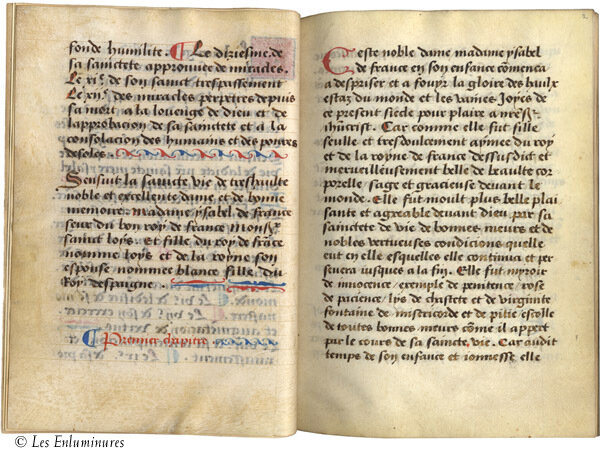 fonde humilite. Le diziesme de
sa sainctete approuuee de miracles.
Le xi.e de son sainct trespassement
Le xii.e des miracles perpetres depuis
sa mort a la louenge de dieu et de
lapprobacion de sa sainctete et a la
consolacion des humains et des poures
desoles.
Sensuit la saincte vie de treshaulte
noble et excellente dame et de bonne
memoire madame ysabel de france
seur du bon roy de france monsr
sainct loys. Et fille du roy de frāce
nomme loys et de la royne son
espouse nommee blance fille du
Roy despaigne.
Premier chapitre
2
Ceste noble dame madame ysabel
de france en son enfance cōmenca
a despriser et a fouyr la gloire des haulx
estaz du monde et les vaines joyes de
ce present siecle pour plaire a
ihūcrist. Car comme elle fut fille
seulle et tresdoulcement aymee du roy
et de la royne de france dessusdict et
merueilleusement belle de beaulte cor
porelle sage et gracieuse deuant le
monde. Elle fut moult plus belle plai
sante et agreable deuant dieu par sa
sainctete de vie de bonnes meurs et de
nobles vertueuses condicions quelle
eut en elle esquelles elle continua et per
seuera iusques a la fin. Elle fut myroir
de innocence exemple de penitence rose
de pacience lys de chastete et de virginite
fontaine de misericorde et de pitie escolle
de toutes bonnes meurs cōme il appert
par le cours de sa saincte vie. Car audit
temps de son enfance et ionnesse elle
© Les Enluminures